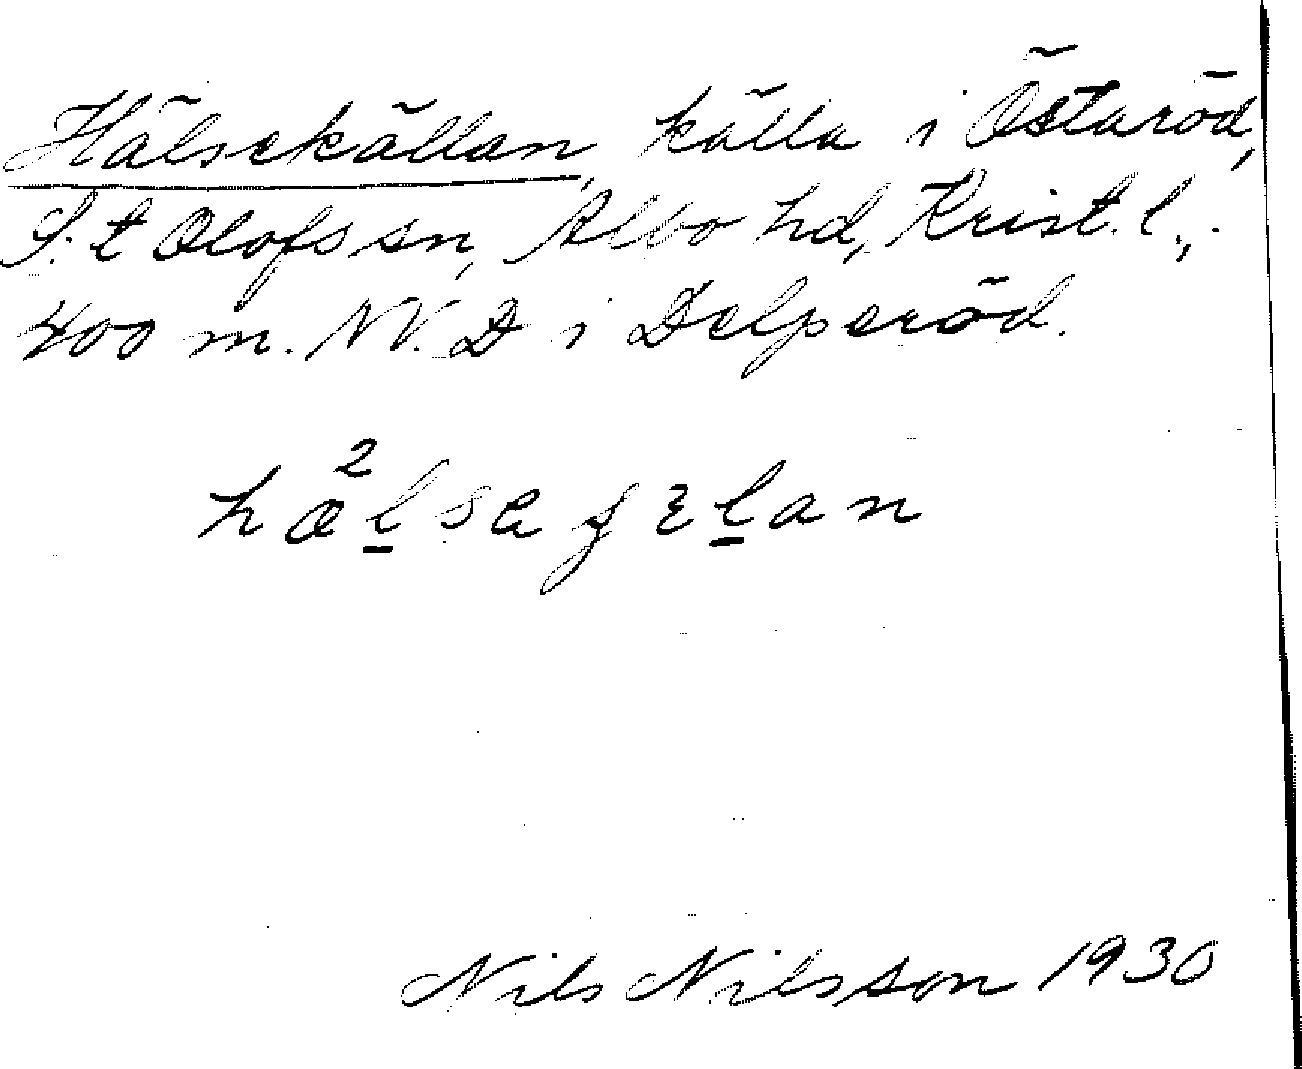 Hälsekällan, källa i Östaröd,
S:t Olofs sn, Albo hd, Krist. l.,
400 m. NV. D i Delperöd.
hæ²l̲sa ɟɛl̲an
Nils Nilsson 1930